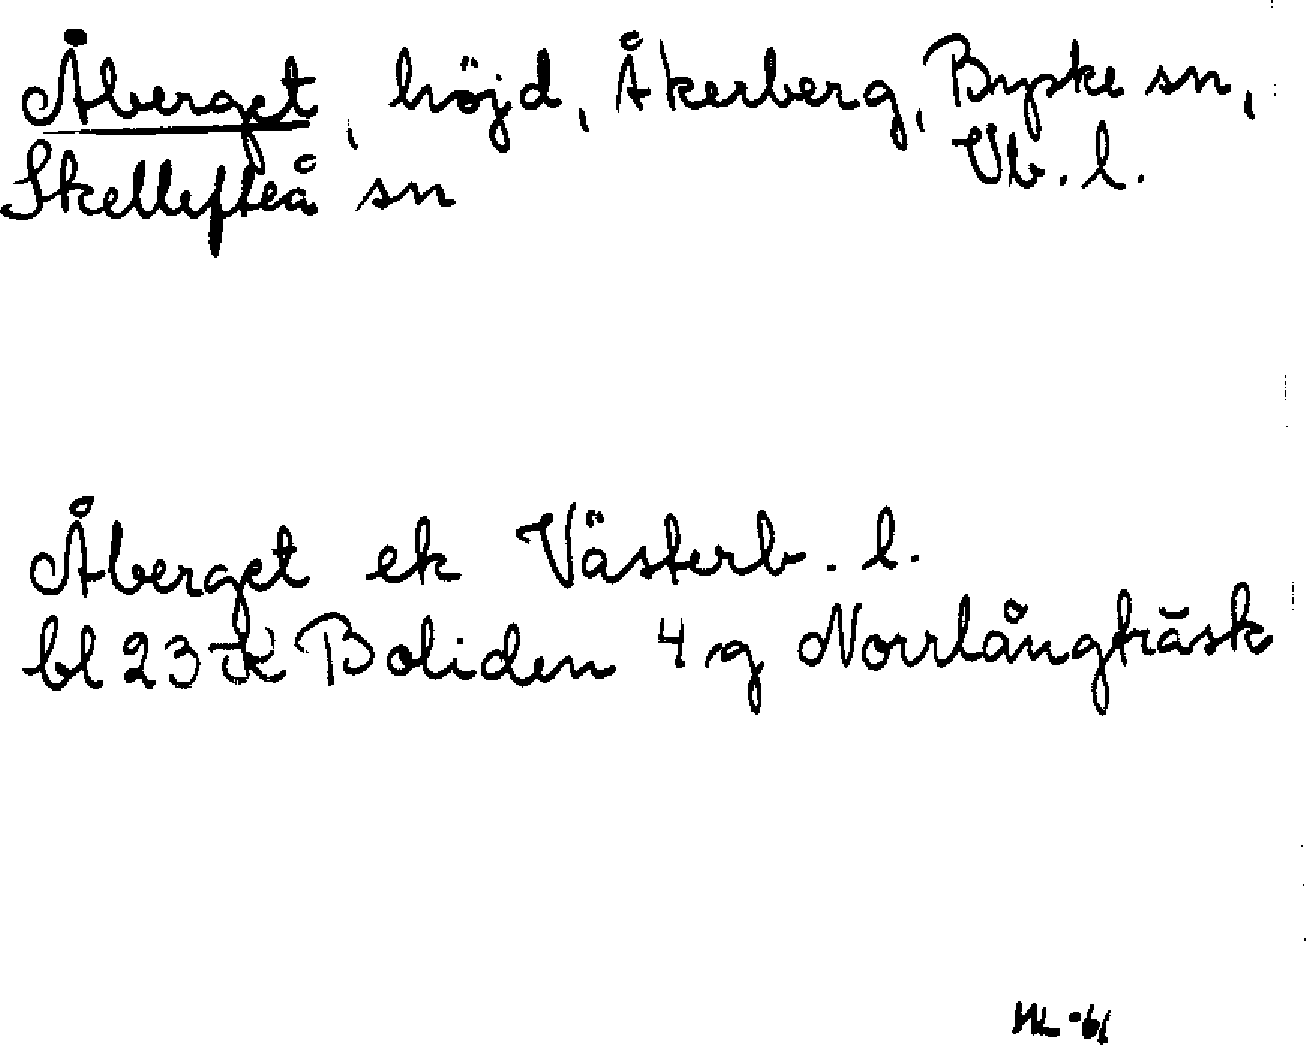 Åberget, höjd, Åkerberg, Byske sn,
Vb. l.
Skellefteå sn
Åberget ek Västerb. l.
bl 23 K Boliden 4 g Norrlångträsk